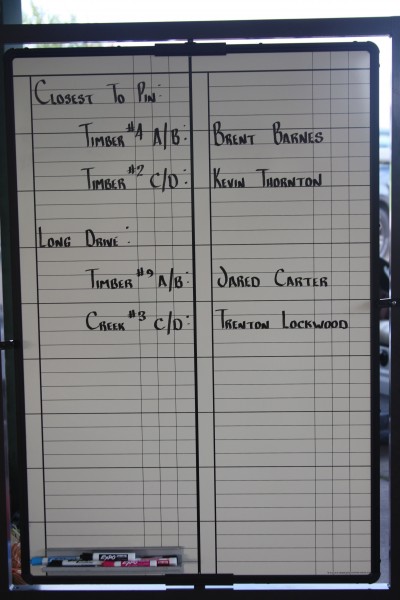 Closest To Pin:
Timber #4 A/B: Brent Barnes
Timber #2 C/D: Kevin Thornton
Long Drive:
Timber #9 A/B: Jared Carter
Creek #3 C/D: Trenton Lockwood